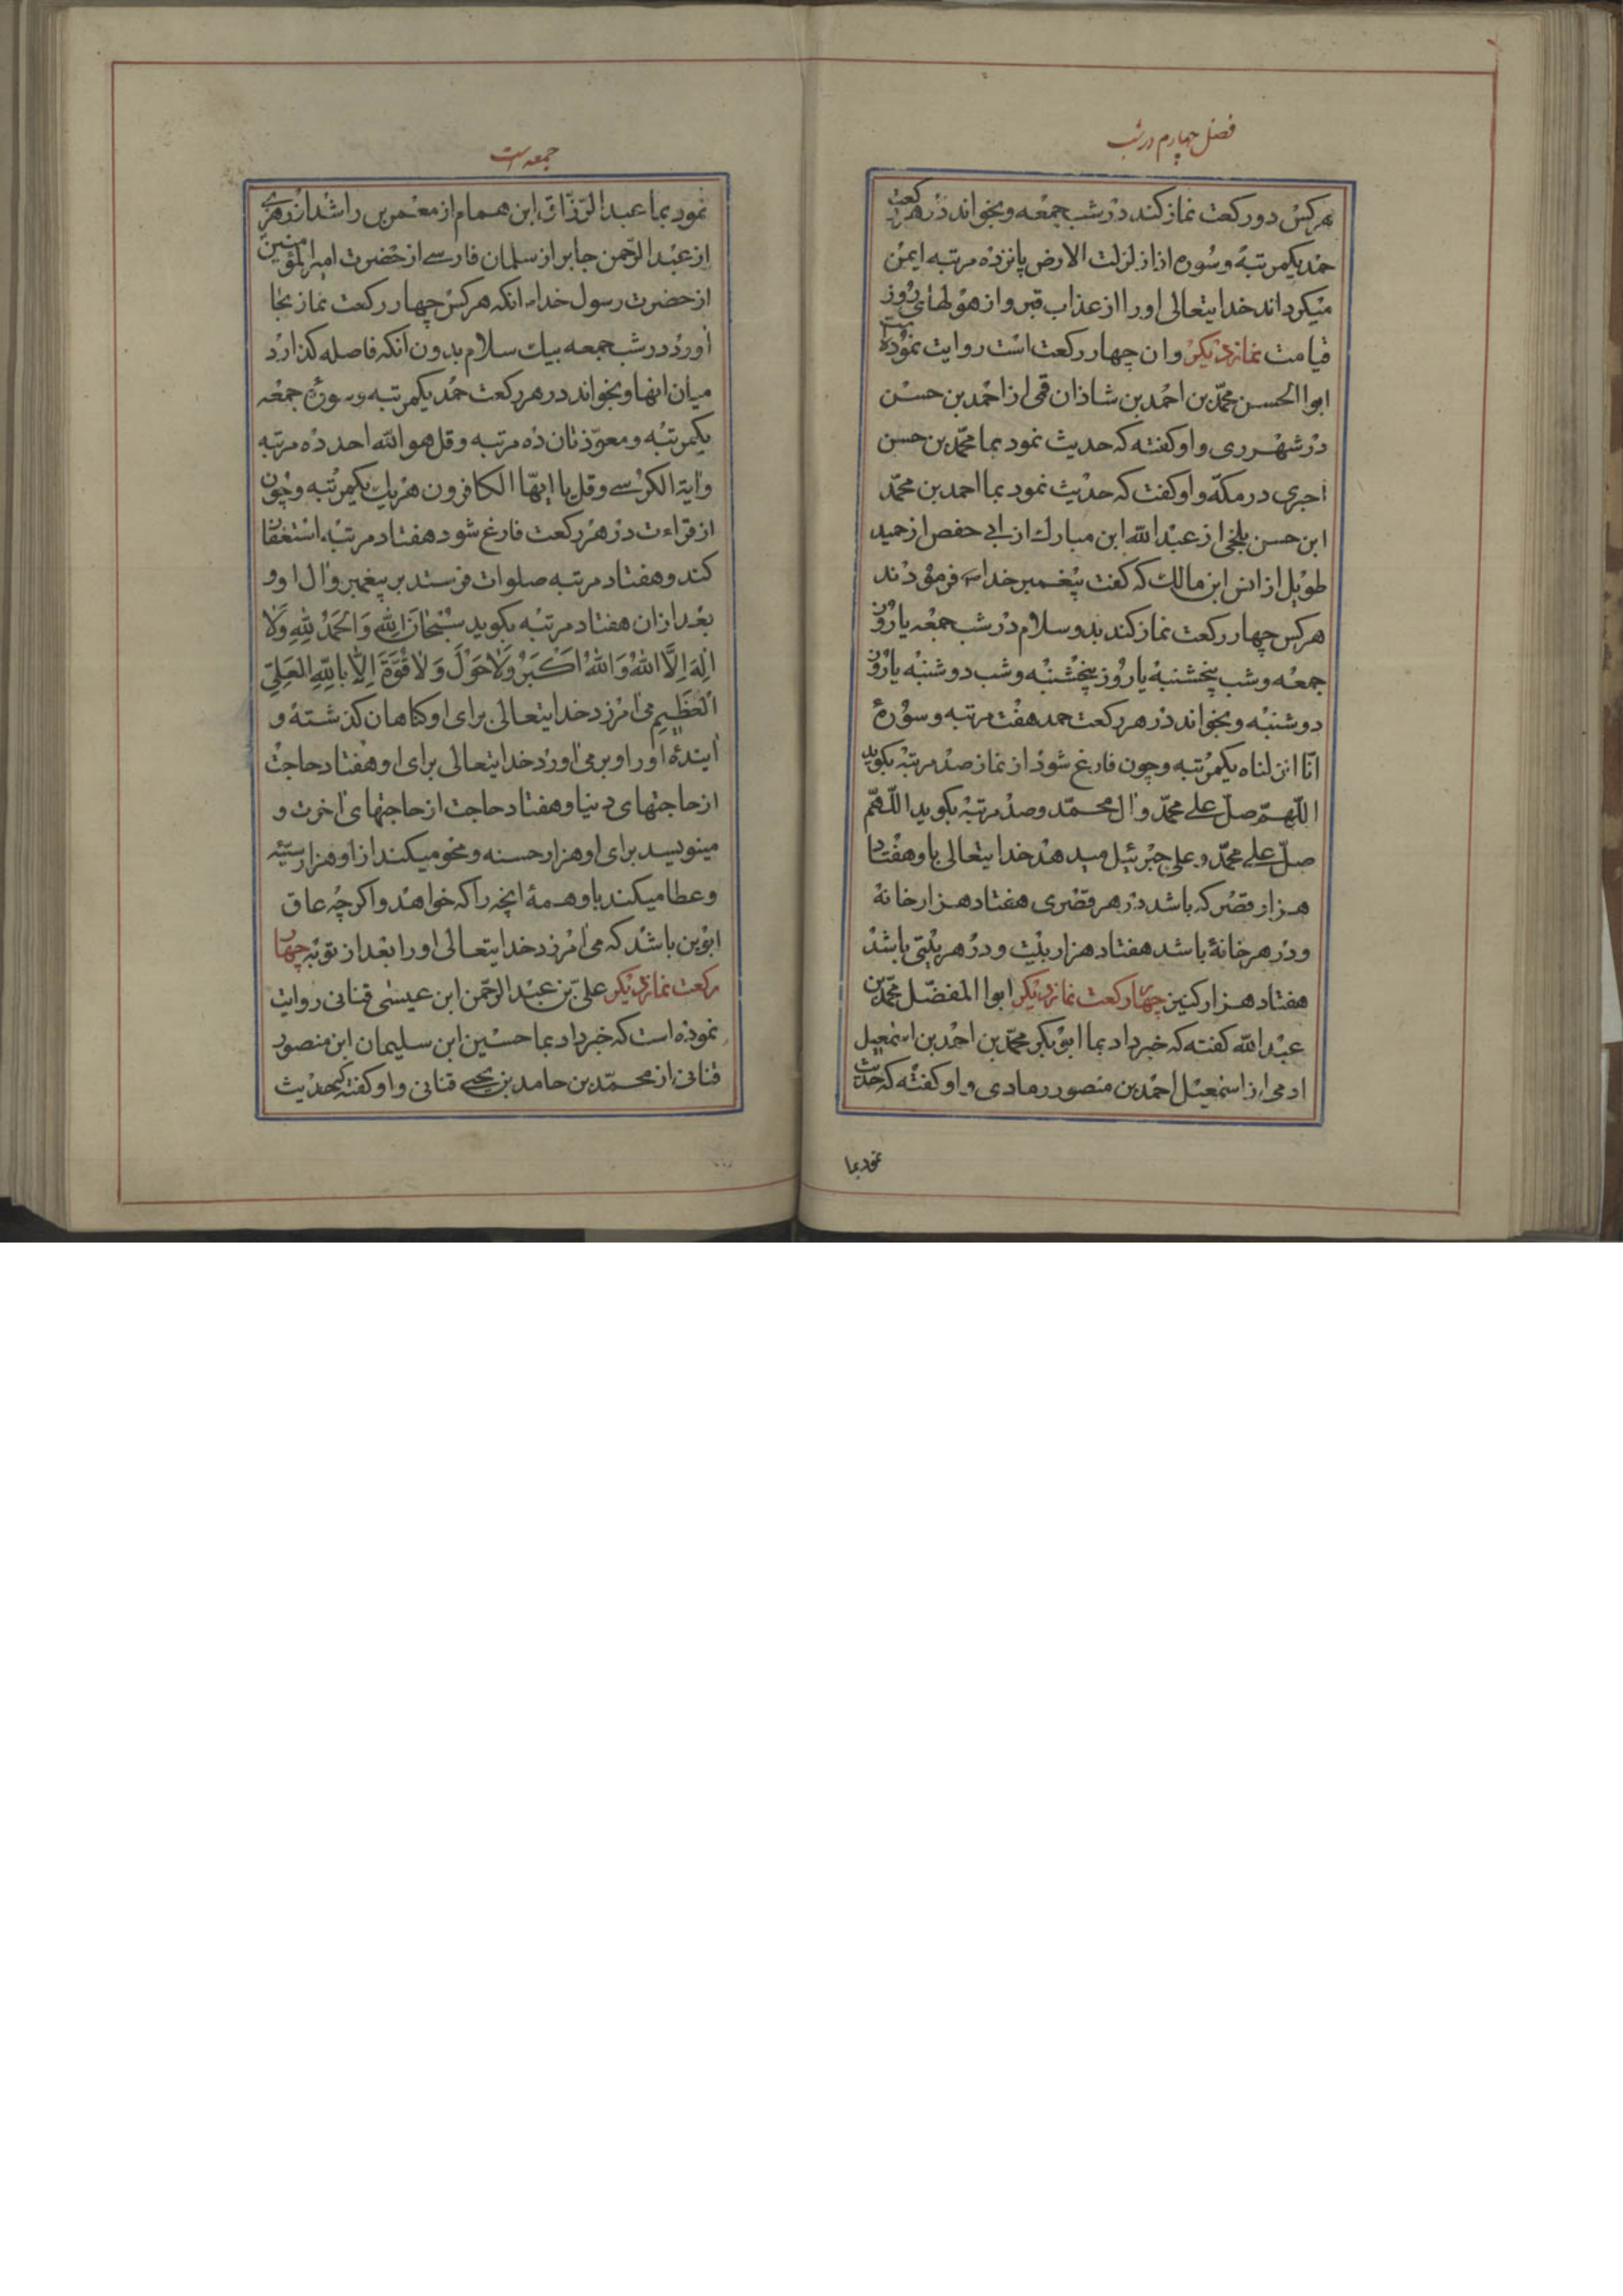 فصل چهارم در شب
هر کس دو رکعت نماز کند در شب جمعه و بخواند در هر رکعت
حمد یکمرتبه و سوره اذا زلزلت الارض پانزده مرتبه ایمن
میکرداند خدایتعالی او را از عذاب قبر و از هولهای روز
قیامت نماز دیکر و ان چهار رکعت است روایت نموده
ابوا الحسن محمّد بن احمد بن شاذان قمی از احمد بن حسن
در شهر ری و او کفته که حدیث نمود بما محمّد بن حسن
اجری در مکّه و او کفت که حدیث نمود بما احمد بن محمّد
ابن حسن بلخی از عبد الله ابن مبارك از ابی حفص از حمید
طویل از انس ابن مالك که کفت پیغمبر خدا فرمودند
هر کس چهار رکعت نماز کند بدو سلام در شب جمعه یا روز
جمعه و شب پنجشنبه یا روز پنجشنبه و شب دوشنبه یا روز
دوشنبه و بخواند در هر رکعت حمد هفت مرتبه و سورهٔ
انّا انزلناه یکمرتبه و چون فارغ شود از نماز صد مرتبه بکوید
اللّهمّ صلّ علی محمّد و ال محمّد و صد مرتبه بکوید اللّهمّ
صلّ علی محمّد و علی جبرئیل میدهد خدایتعالی باو هفتاد
هزار قصر که باشد در هر قصری هفتاد هزار خانهٔ
و در هر خانهٔ باشد هفتاد هزار بیت و در هر بیتی باشد
هفتاد هزار کنیز چهار رکعت نماز دیکر ابوا المفضّل محمّد بن
عبد الله کفته که خبر داد بما ابو بکر محمّد بن احمد بن اسمعیل
ادمی از اسمعیل احمد بن منصور رمادی و او کفته که حدیث
نمود بما
جمعه است
نمود بما عبد الرّزّاق ابن همام از معمر بن راشد از زهری
از عبد الرّحمن جابر از سلمان فارسی از حضرت امیر المؤمنین
از حضرت رسول خدا انکه هر کس چهار رکعت نماز بجا
اورد در شب جمعه بیك سلام بدون انکه فاصله کذارد
میان انها و بخواند در هر رکعت حمد یکمرتبه و سورهٔ جمعه
یکمرتبه و معوّذتان ده مرتبه و قل هو الله احد ده مرتبه
و ایة الکرسی و قل یا ایهّا الکافرون هر یك یکمرتبه و چون
از قراءت در هر رکعت فارغ شود هفتاد مرتبه استغفار
کند و هفتاد مرتبه صلوات فرستد بر پیغمبر و ال او و
بعد از ان هفتاد مرتبه بکوید سُبْحانَ اللهِ وَ الْحَمْدُ لِلّهِ وَ لا
اِلهَ اِلَّا اللهُ وَ اللهُ اَکْبَرُ وَ لا حَوْلَ وَ لا قُوَّةَ اِلّا بِاللهِ العَلِیِّ
الْعَظِیمِ می امرزد خدایتعالی برای او کناهان کذشته و
ایندهٔ او را و برمی اورد خدایتعالی برای او هفتاد حاجت
از حاجتهای دنیا و هفتاد حاجت از حاجتهای اخرت و
مینویسد برای او هزار حسنه و محو میکند از او هزار سیّئه
و عطا میکند باو همهٔ انچه را که خواهد و اکر چه عاق
ابوین باشد که می امرزد خدایتعالی او را بعد از توبه چهار
رکعت نماز دیکر علی بن عبد الرّحمن ابن عیسی قنانی روایت
نموده است که خبر داد بما حسین ابن سلیمان ابن منصور
قنانی از محمّد بن حامد بن یحیی قنانی و او کفته که حدیث